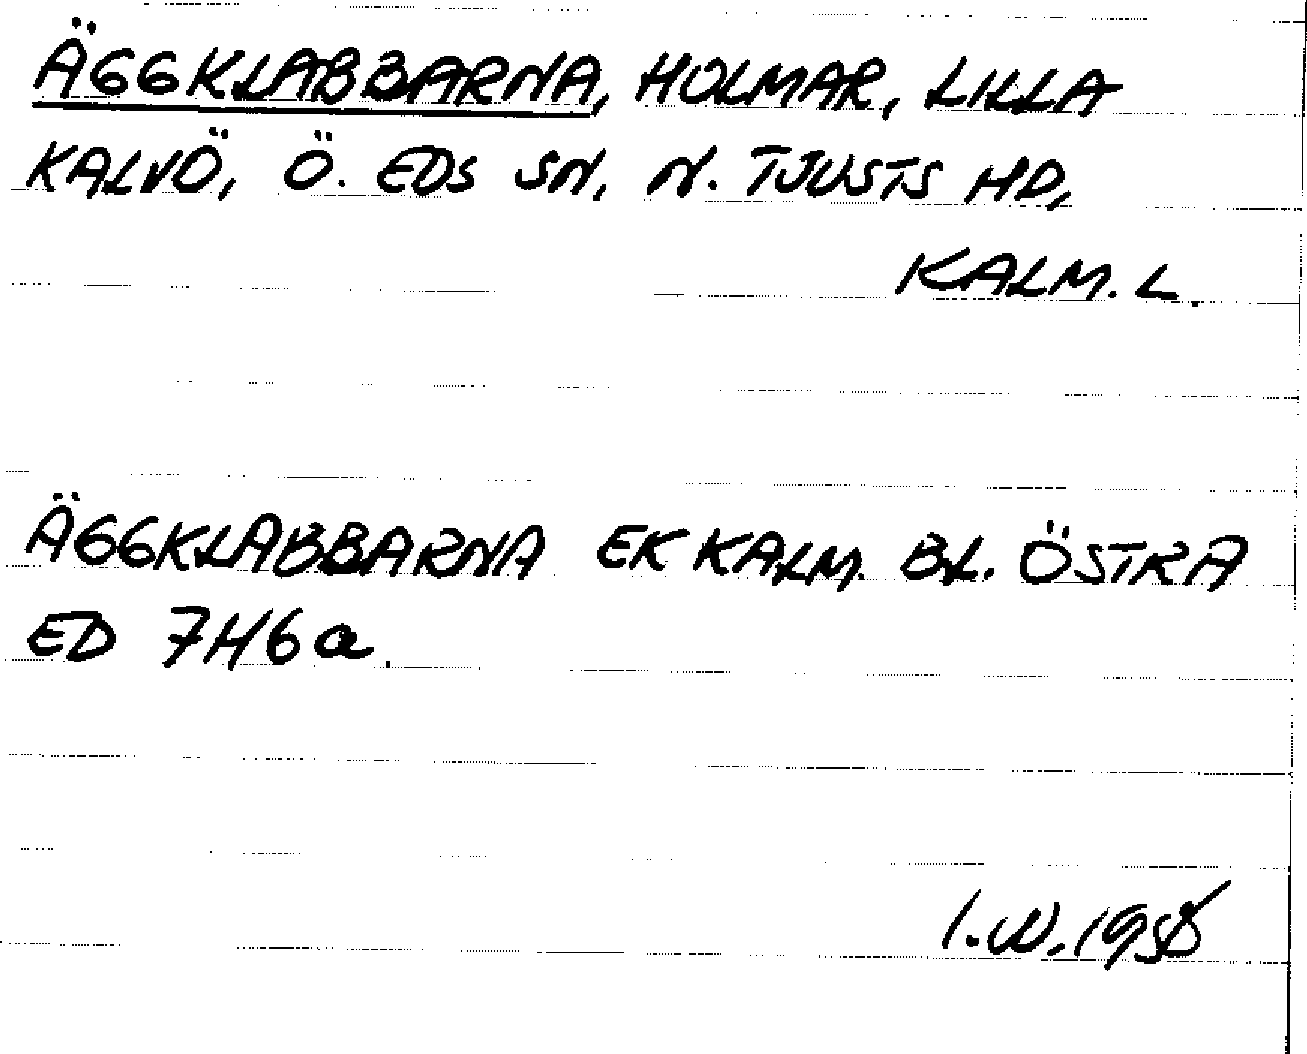 ÄGGKLABBARNA, HOLMAR, LILLA
KALVÖ, Ö. EDS SN, N. TJUSTS HD,
KALM. L.
ÄGGKLABBARNA EK KALM. BL. ÖSTRA
ED 7H6a.
I.W. 1958